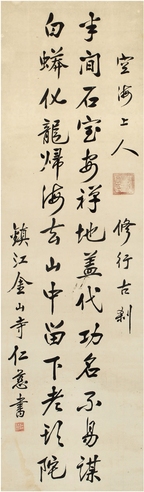 空海上人 修行古刹
半间石室安禅地盖代功名不易谋
白蟒化龙归海去山中留下老头陀
镇江金山寺仁慈书